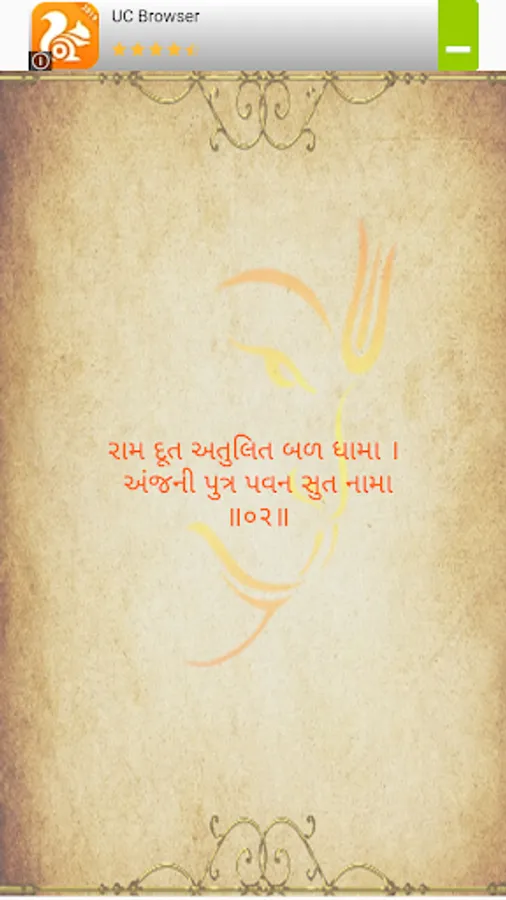 UC Browser
રામ દૂત અતુલિત બળ ધામા ।
અંજની પુત્ર પવન સુત નામા
॥૦૨॥